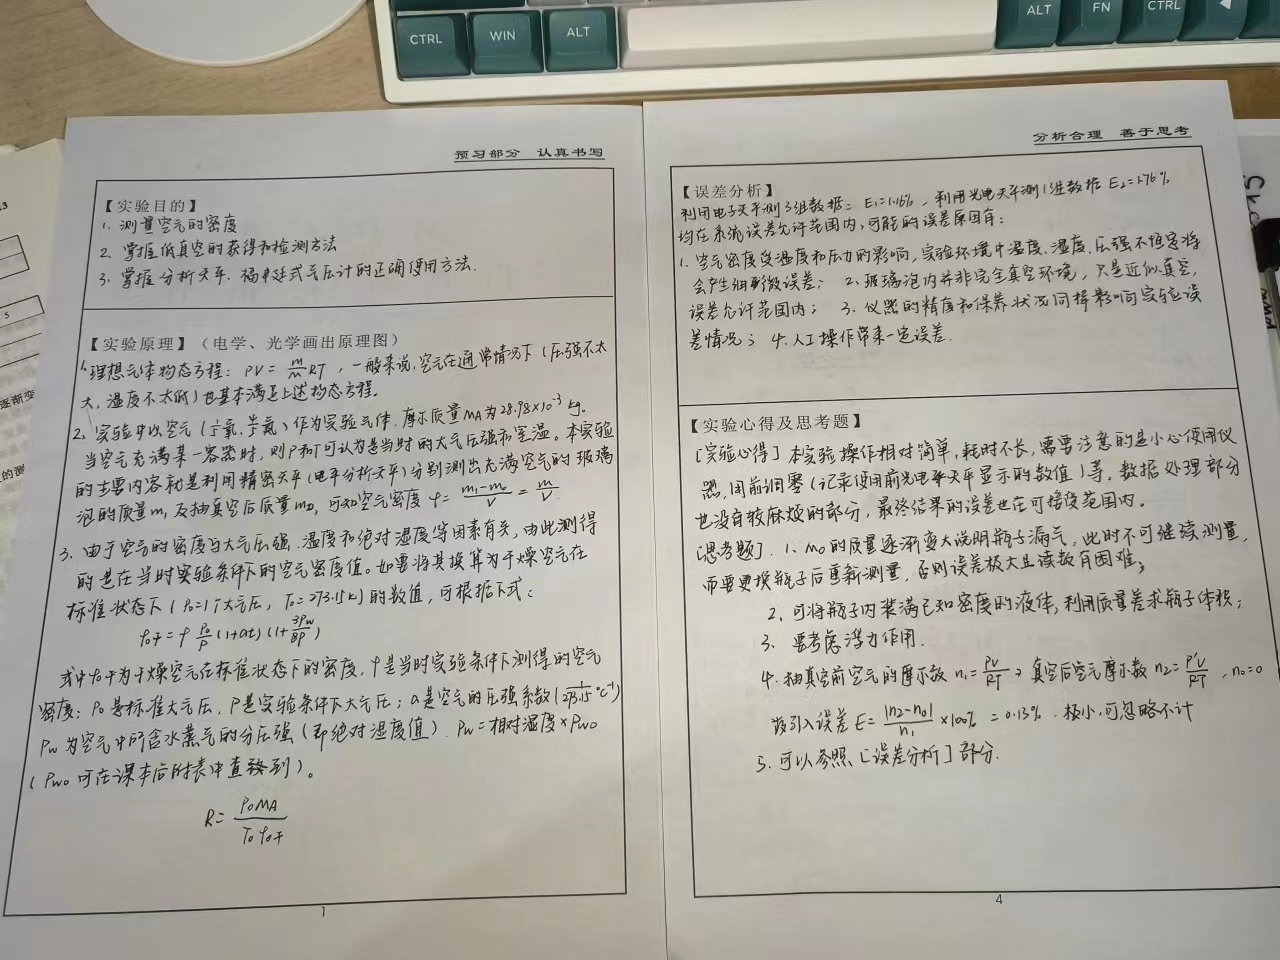 CTRL
WIN
ALT
ALT
FN
CTRL
预习部分 认真书写
【实验目的】
1. 测量空气的密度
2. 掌握低真空的获得和检测方法
3. 掌握分析天平、福廷式气压计的正确使用方法.
【实验原理】（电学、光学画出原理图）
1. 理想气体物态方程：PV = m/M RT，一般来说，空气在通常情况下（压强不太
大，温度不太低）也基本满足上述物态方程。
2. 实验中以空气作为实验气体，摩尔质量MA为28.98×10⁻³ kg。
当空气充满某一容器时，则P和T可认为是当时的大气压强和室温。本实验
的主要内容就是利用精密天平（电平分析天平）分别测出充满空气的玻璃
泡的质量m₁及抽真空后质量m₀，可知空气密度 ρ = (m₁-m₀)/V = m/V.
3. 由于空气的密度与大气压强、温度和绝对湿度等因素有关，由此测得
的是在当时实验条件下的空气密度值。如要将其换算为干燥空气在
标准状态下（P₀=1个大气压，T₀=273.15k）的数值，可根据下式：
ρ₀干 = ρ P₀/P (1+at)(1+3Pw/8P)
式中ρ₀干为干燥空气在标准状态下的密度，ρ是当时实验条件下测得的空气
密度；P₀是标准大气压，P是实验条件下大气压；a是空气的压强系数(1/273.15 ℃⁻¹)
Pw为空气中所含水蒸气的分压强（即绝对湿度值）. Pw=相对湿度×Pw0
（Pw0可在课本后附表中查到）。
R = P₀MA / T₀ρ₀干
1
分析合理 善于思考
【误差分析】
利用电子天平测3组数据：E₁=1.16%，利用光电天平测1组数据E₂=1.76%
均在系统误差允许范围内，可能的误差原因有：
1. 空气密度受温度和压力的影响，实验环境中温度、湿度、压强不恒定将
会产生细微误差； 2. 玻璃泡内并非完全真空环境，只是近似真空，
误差允许范围内； 3. 仪器的精度和保养状况同样影响实验误
差情况； 4. 人工操作带来一定误差.
【实验心得及思考题】
[实验心得] 本实验操作相对简单，耗时不长，需要注意的是小心使用仪
器，用前调零（记录使用前光电天平显示的数值）等，数据处理部分
也没有较麻烦的部分，最终结果的误差也在可接受范围内.
[思考题]. 1. m₀的质量逐渐变大说明瓶子漏气，此时不可继续测量，
而需要换瓶子后重新测量，否则误差极大且读数有困难；
2. 可将瓶子内装满已知密度的液体，利用质量差求瓶子体积；
3. 要考虑浮力作用.
4. 抽真空前空气的摩尔数 n₁=PV/RT，真空后空气摩尔数 n₂=P'V/RT，n₀=0
故引入误差E=|n₂-n₀|/n₁×100% = 0.13%. 极小，可忽略不计
5. 可以参照[误差分析]部分.
4